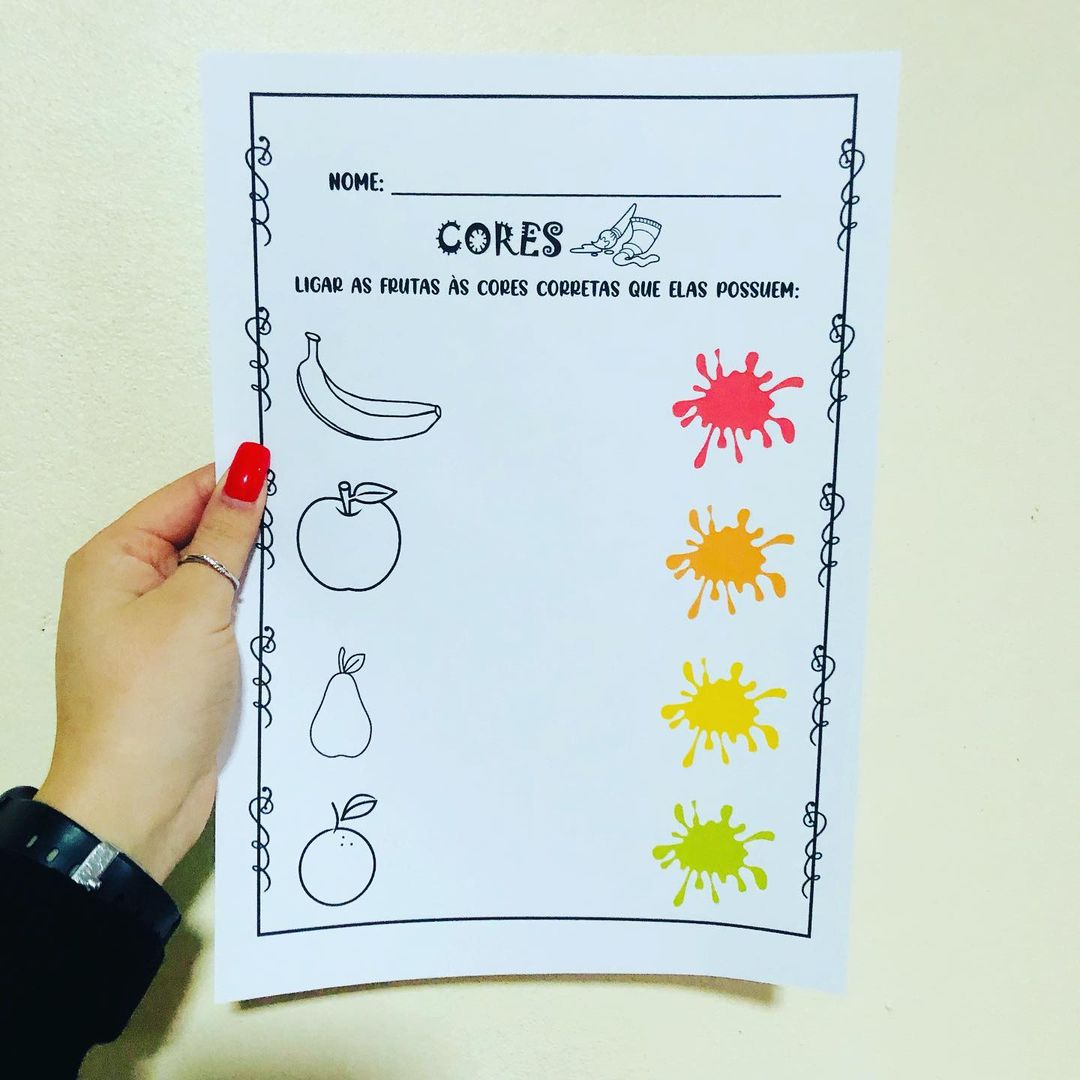 NOME:
CORES
LIGAR AS FRUTAS ÀS CORES CORRETAS QUE ELAS POSSUEM: